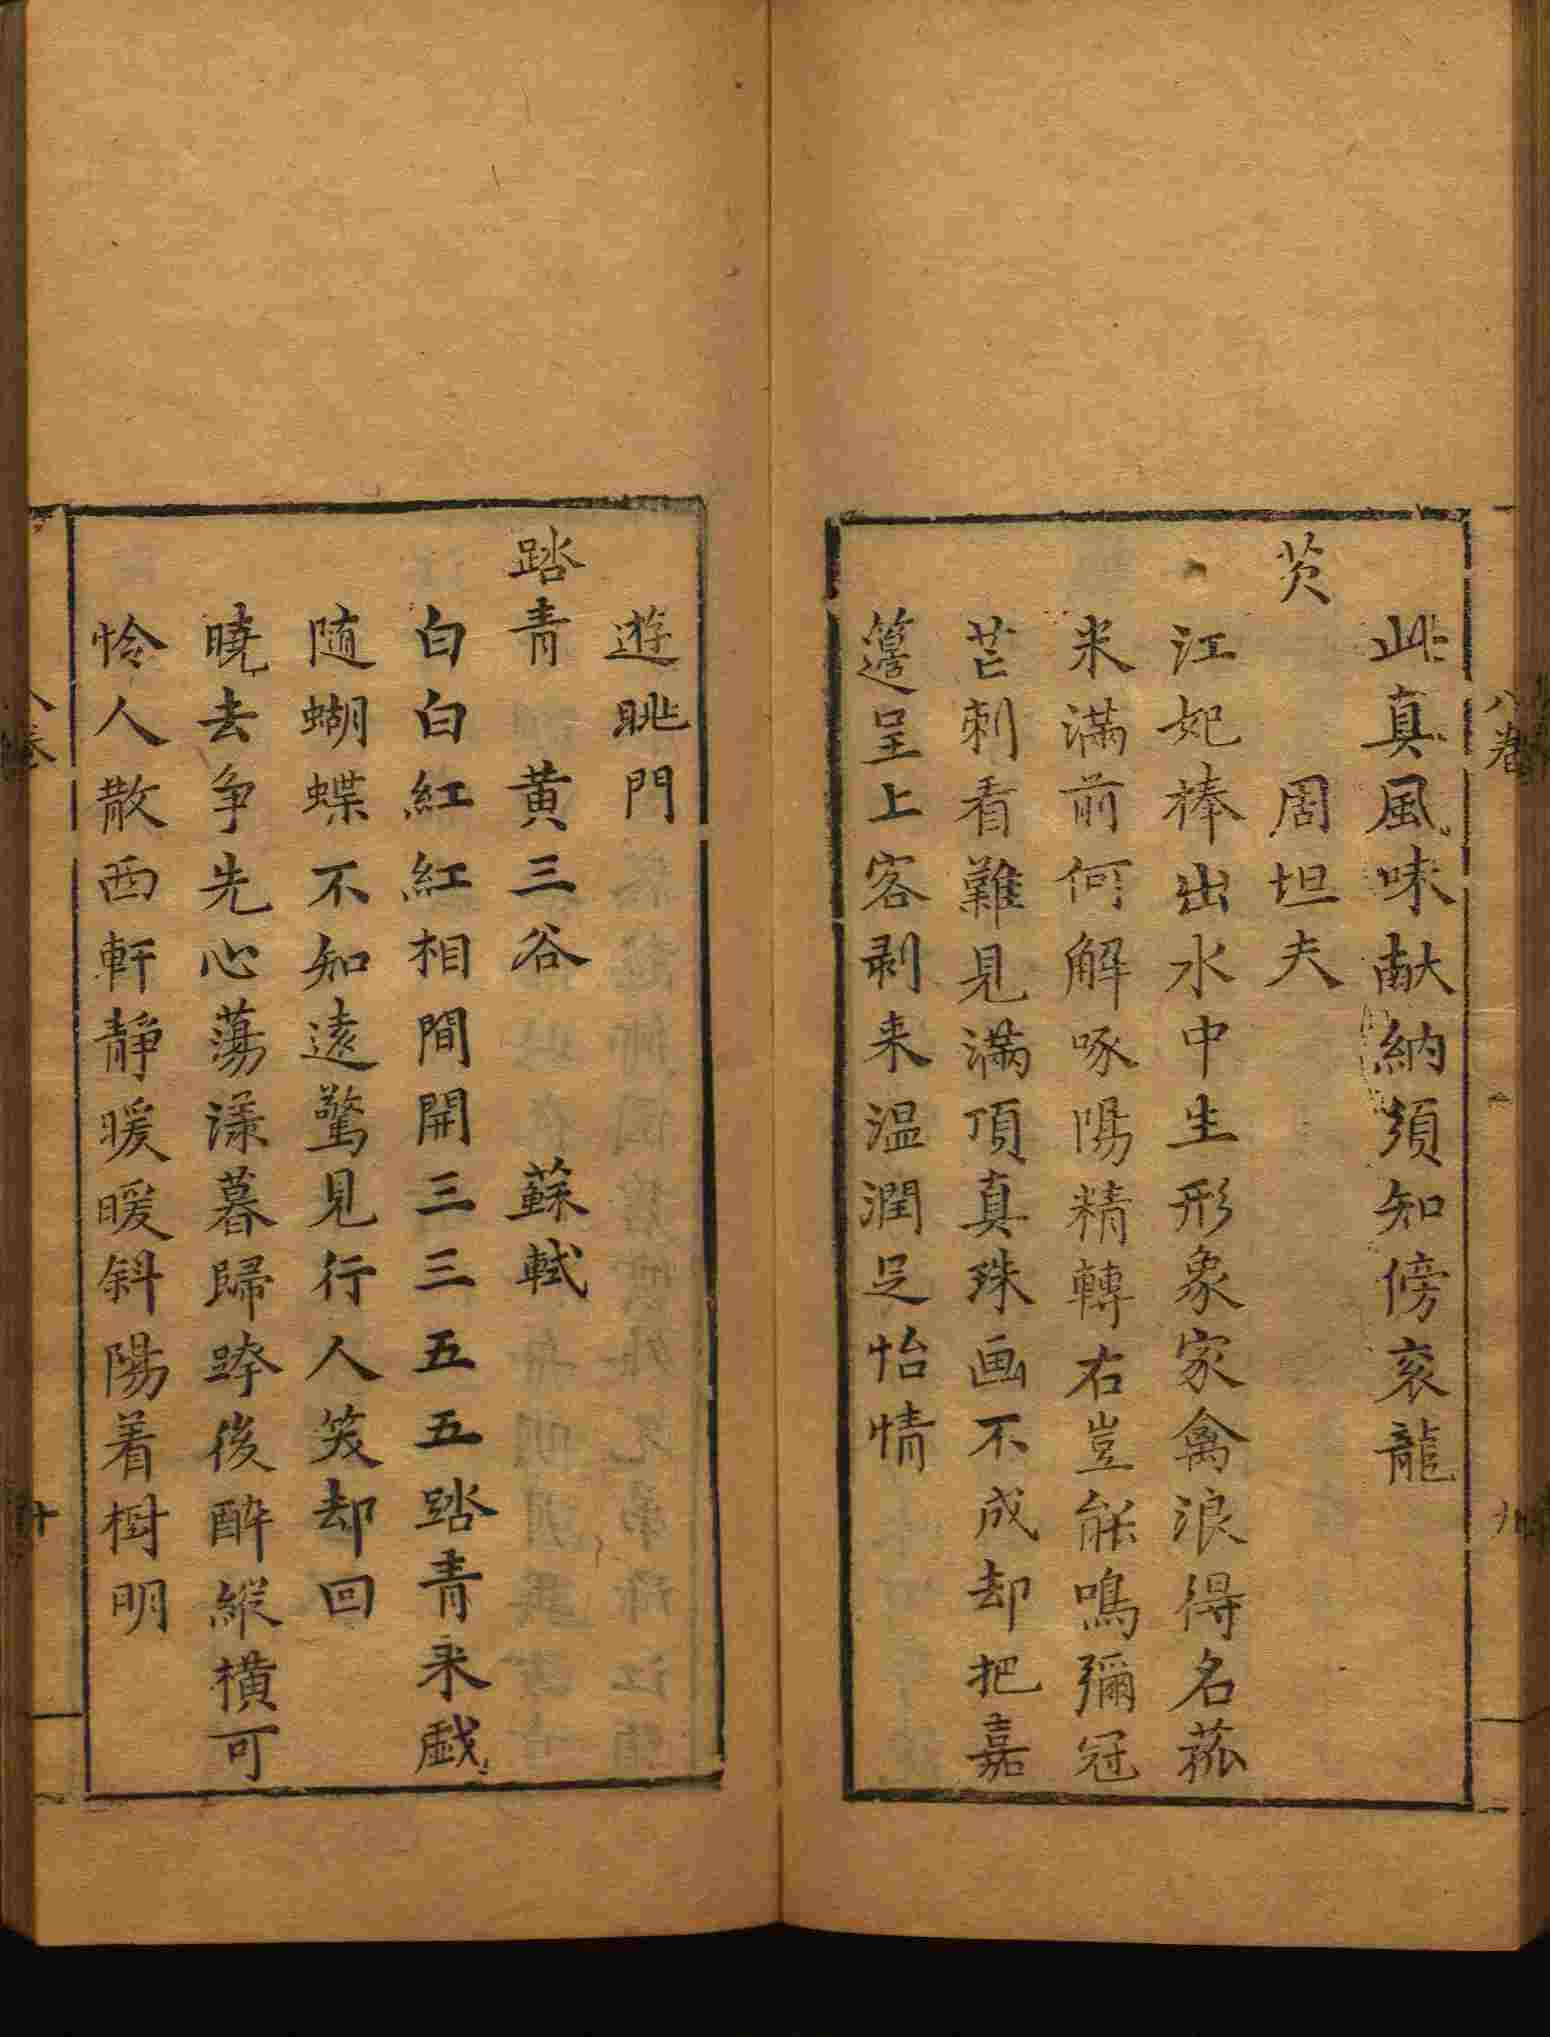 此真風味献納須知傍衮龍
芡
周坦夫
江妃捧出水中生形象家禽浪得名菰
米滿前何解啄陽精轉右豈能鳴彌冠
芒刺看難見滿頂真珠画不成却把嘉
籩呈上客剥来温潤足怡情
八卷
九
遊眺門
踏青 黄三谷 蘇軾
白白紅紅相間開三三五五踏青来戯
随蝴蝶不知遠驚見行人笑却回
曉去争先心蕩漾暮歸跨後醉縱橫可
怜人散西軒靜暖暖斜陽着樹明
八卷
十